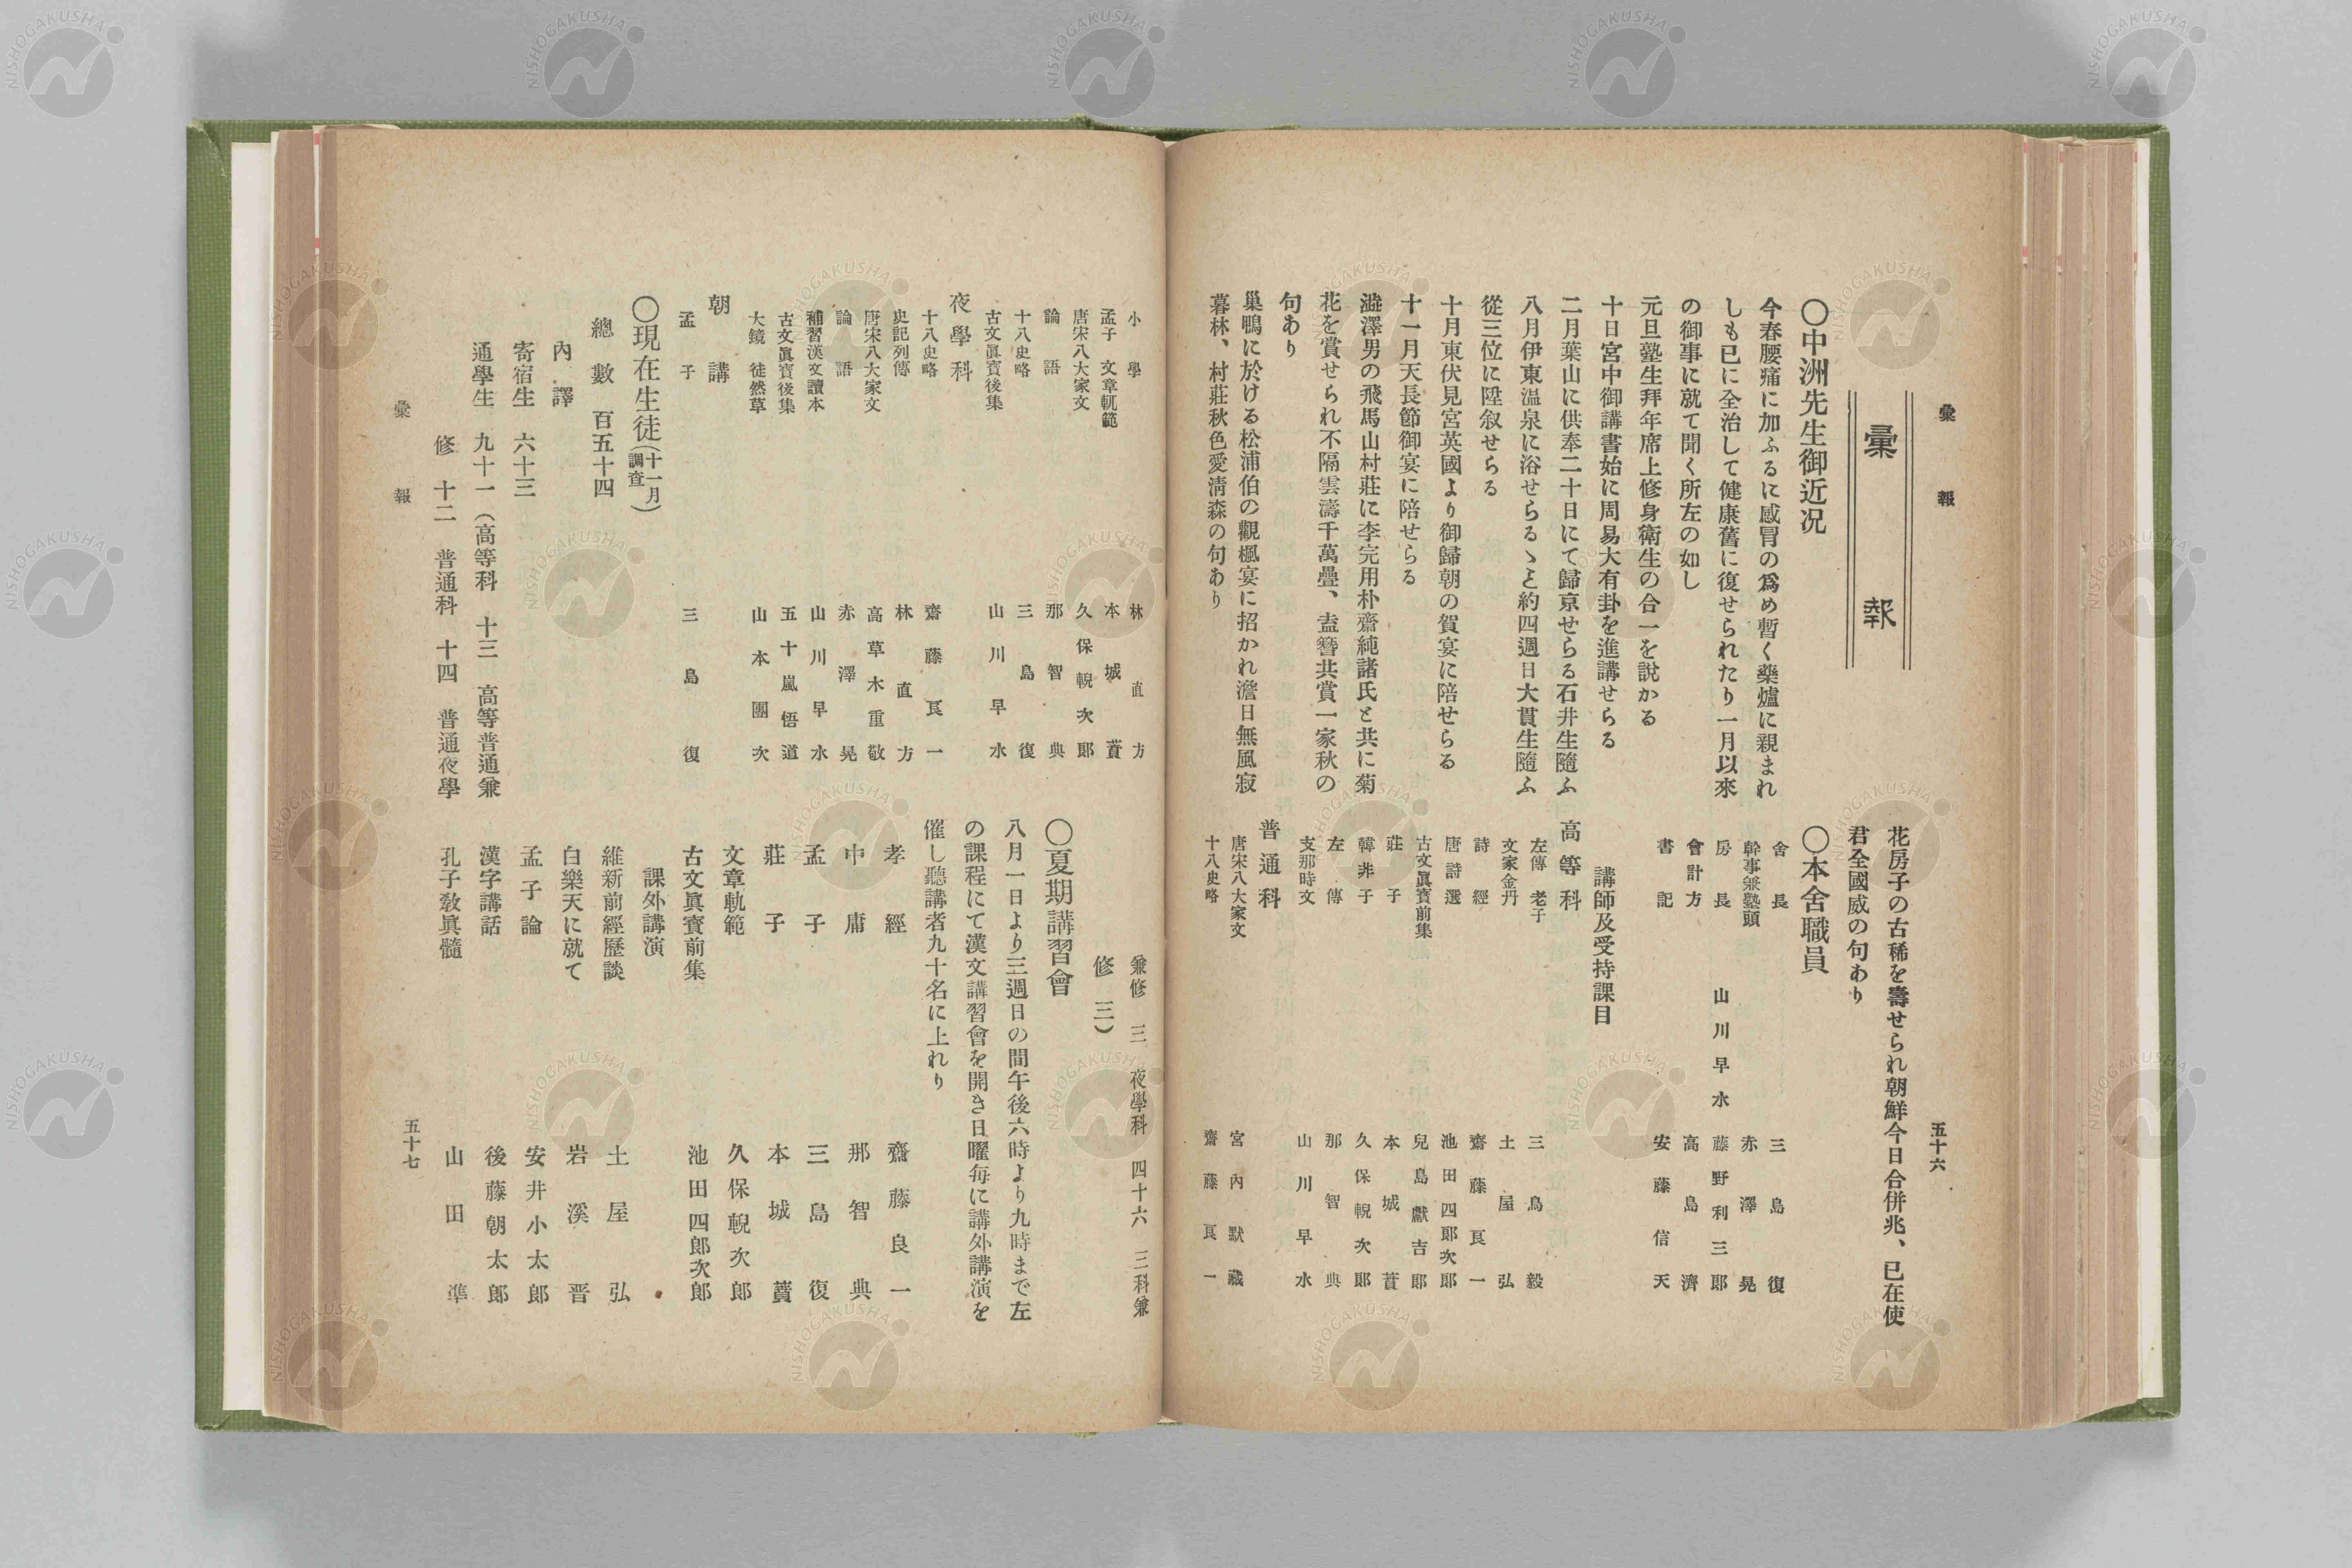 彙報
五十六
彙報
〇中洲先生御近况
今春腰痛に加ふるに感冒の爲め暫く藥爐に親まれ
しも已に全治して健康舊に復せられたり一月以來
の御事に就て聞く所左の如し
元旦塾生拜年席上修身衛生の合一を説かる
十日宮中御講書始に周易大有卦を進講せらる
二月葉山に供奉二十日にて歸京せらる石井生隨ふ
八月伊東溫泉に浴せらるゝと約四週日大貫生隨ふ
從三位に陞叙せらる
十月東伏見宮英國より御歸朝の賀宴に陪せらる
十一月天長節御宴に陪せらる
澁澤男の飛馬山村莊に李完用朴齋純諸氏と共に菊
花を賞せられ不隔雲濤千萬疊、盍簪共賞一家秋の
句あり
巢鴨に於ける松浦伯の觀楓宴に招かれ澹日無風寂
暮林、村莊秋色愛淸森の句あり
花房子の古稀を壽せられ朝鮮今日合併兆、已在使
君全國威の句あり
〇本舍職員
舍長 三島復
幹事兼塾頭 赤澤晃
房長 山川早水 藤野利三郎
會計方 高島濟
書記 安藤信天
講師及受持課目
高等科
左傳 老子 三島毅
文家金丹 土屋弘
詩經 齋藤良一
唐詩選 池田四郎次郎
古文眞寶前集 兒島獻吉郎
莊子 本城蕡
韓非子 久保輗次郎
左傳 那智典
支那時文 山川早水
普通科
唐宋八大家文 宮內默藏
十八史略 齋藤良一
小學 林直方
孟子 文章軌範 本城蕡
唐宋八大家文 久保輗次郎
論語 那智典
十八史略 三島復
古文眞寶後集 山川早水
夜學科
十八史略 齋藤良一
史記列傳 林直方
唐宋八大家文 高草木重敬
論語 赤澤晃
補習漢文讀本 山川早水
古文眞寶後集 五十嵐悟道
大鏡 徒然草 山本團次
朝講
孟子 三島復
〇現在生徒(十一月調査)
總數 百五十四
內譯
寄宿生 六十三
通學生 九十一(高等科 十三 高等普通兼
修 十二 普通科 十四 普通夜學
兼修 三 夜學科 四十六 三科兼
修 三)
〇夏期講習會
八月一日より三週日の間午後六時より九時まで左
の課程にて漢文講習會を開き日曜毎に講外講演を
催し聽講者九十名に上れり
孝經 齋藤良一
中庸 那智典
孟子 三島復
莊子 本城蕡
文章軌範 久保輗次郎
古文眞寶前集 池田四郎次郎
課外講演
維新前經歷談 土屋弘
白樂天に就て 岩溪晋
孟子論 安井小太郎
漢字講話 後藤朝太郎
孔子敎眞髓 山田準
彙報
五十七